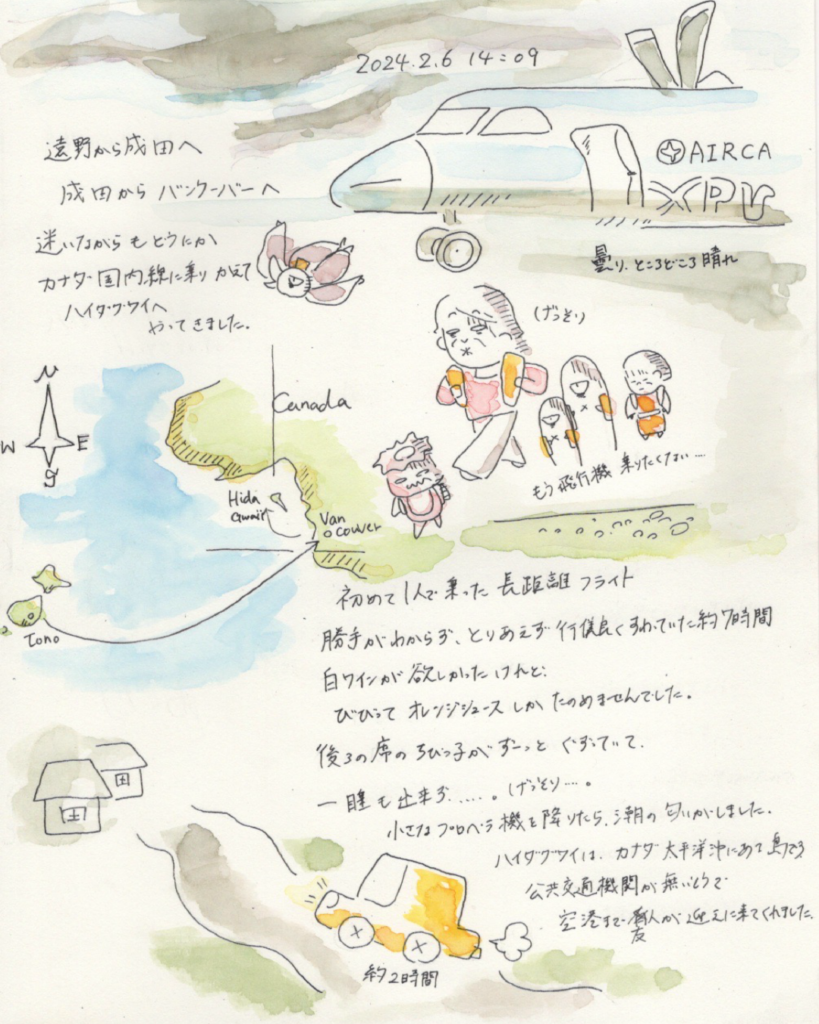 2024.2.6 14:09
遠野から成田へ
成田から バンクーバーへ
迷いながらも どうにか
カナダ国内線に乗り かえて
ハイダグワイへ
やってきました。
AIRCA
XPR
曇り、ところどころ晴れ
(げっそり)
もう飛行機 乗りたくない…
N
W
E
S
Canada
Hida
Gwaii
Van
couver
Tono
初めて1人で乗った 長距離 フライト
勝手がわからず、とりあえず 行儀良くすわっていた約7時間
白ワインが欲しかったけれど、
びびって オレンジジュース しか たのめませんでした。
後ろの席のちびっ子がずーっと ぐずっていて、
一睡も出来ず……。げっそり…。
小さなプロペラ機を降りたら、潮の匂いがしました。
ハイダグワイは、カナダ太平洋沖にある島です
公共交通機関が無いので
空港まで友人が迎えに来てくれました。
約2時間